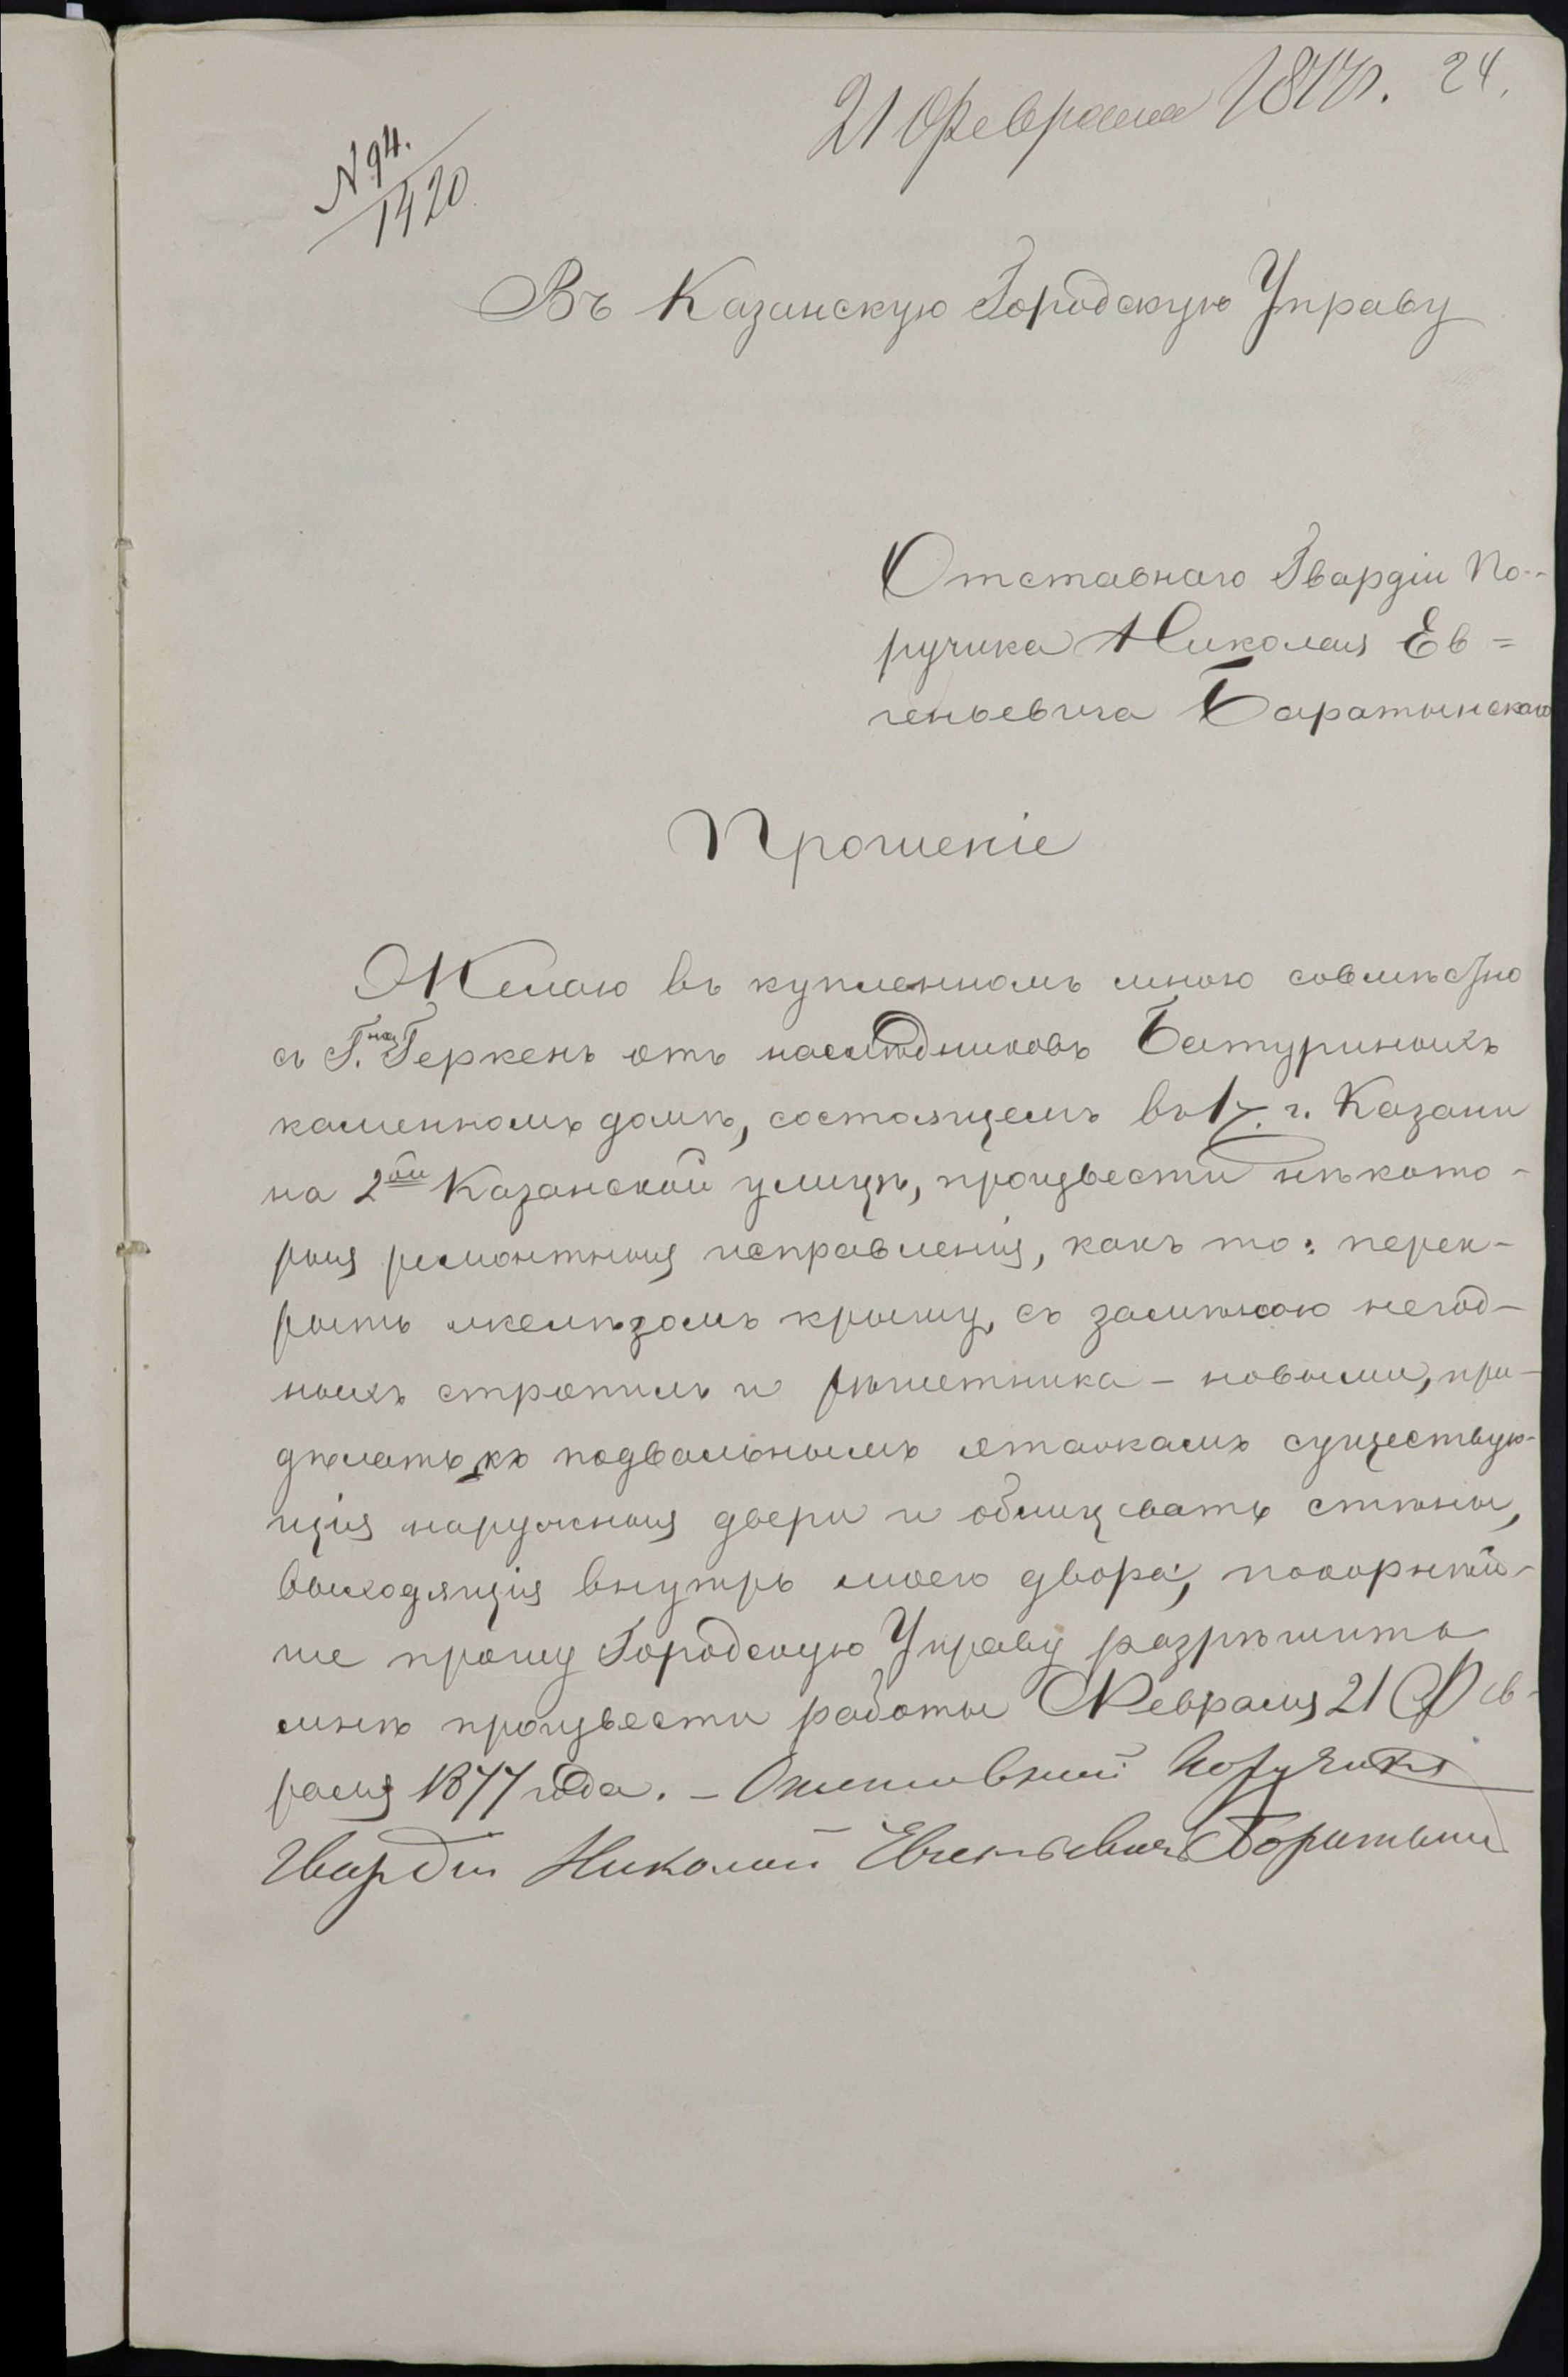 21 Февраля 1877г. 24.
N 94.
1420
Въ Казанскую Городскую Управу
Отставнаго Гвардіи По-
ручика Николая Ев=
геньевича Баратынскаго
Прошеніе
Желаю въ купленномъ мною совмѣстно
съ Г.на Геркенъ отъ наслѣдниковъ Батуриныхъ
каменномъ домѣ, состоящемъ въ 1 ч. г. Казани
на 2ой Казанской улицѣ, произвести нѣкото-
рыя ремонтныя исправленія, какъ то: перек-
рыть желѣзомъ крышу, съ замѣною негод-
ныхъ стропилъ и рѣшетника - новыми, при-
дѣлать къ подвальнымъ этажамъ существую-
щія наружныя двери и облицевать стѣны,
выходящія внутрь моего двора, покорнѣй-
ше прошу Городскую Управу разрѣшить
мнѣ произвести работы Февраля 21 Фев-
раля 1877 года. - Отставной Поручикъ
Гвардіи Николай Евгеньевичъ Боратынс